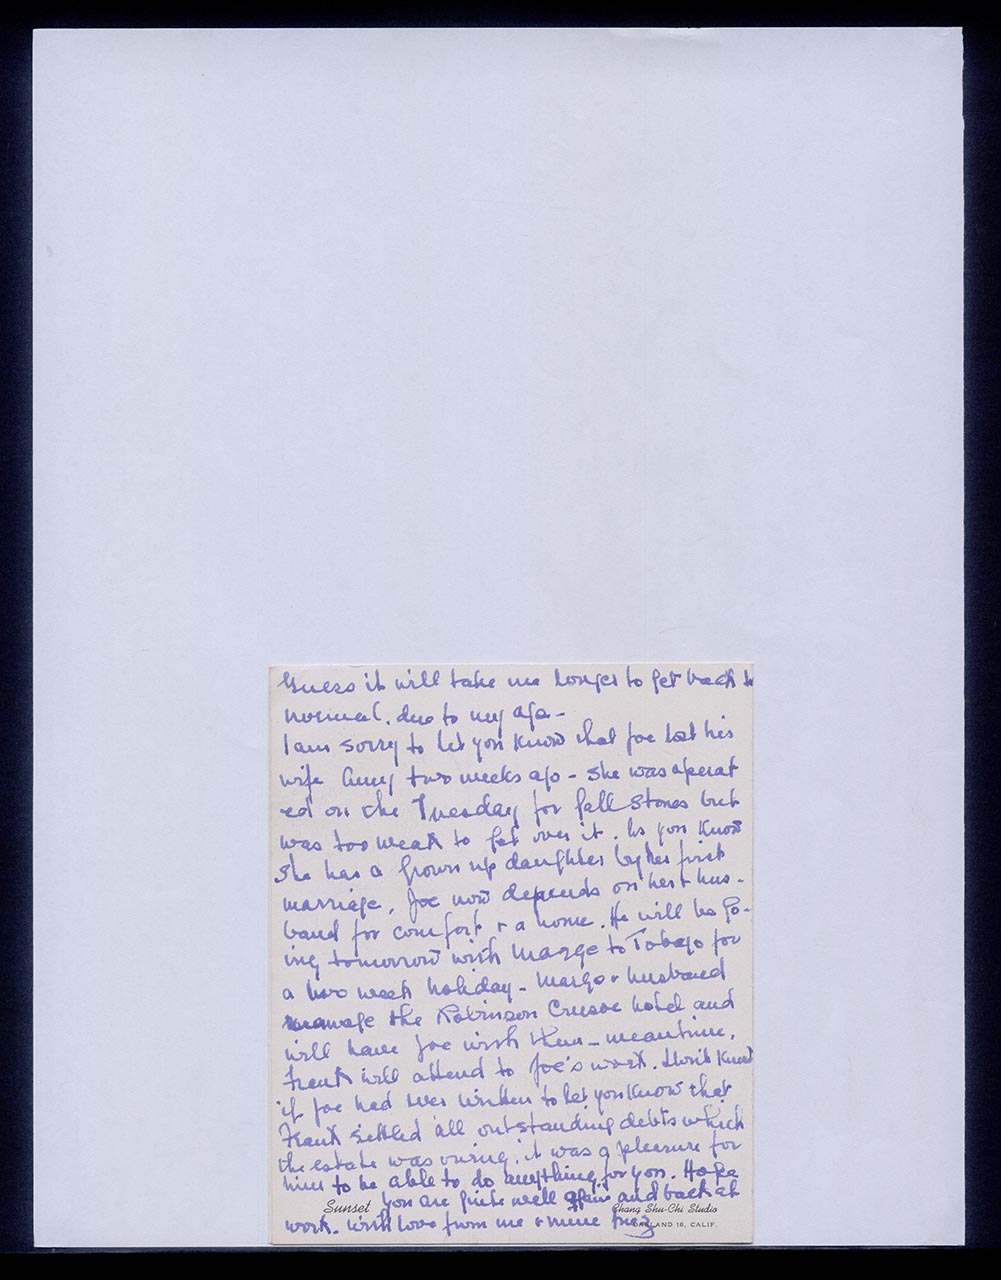 Guess it will take me longer to get back to
normal. due to my age -
I am sorry to let you know that Joe lost his
wife Amy two weeks ago - she was operat
ed on the Tuesday for gall stones but
was too weak to get over it. As you know
She has a grown up daughter by her first
marriage. Joe now depends on her + hus-
band for comfort + a home. He will be go-
ing tomorrow with Marge to Tobago for
a two week holiday - Margo + husband
manage the Robinson Crusoe hotel and
will have Joe with them - meantime.
Frank will attend to Joe's work. Don't know
if Joe had ever written to let you know that
Frank settled all outstanding debts which
the estate was owing. it was a pleasure for
him to be able to do anything for you. Hope
you are quite well again and back at
work. With love from me + mine
Sunset
Chang Shu-Chi Studio
OAKLAND 18, CALIF.